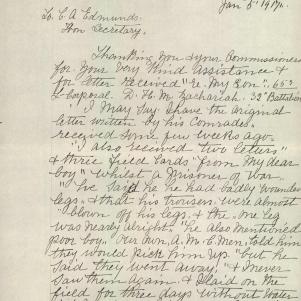 Jan 5. 1917.
To C A Edmunds.
Hon Secretary.
Thanking You & your Commissioners
for Your Very Kind Assistance &
for letter Received "Re. My Son". 653
L Corporal. L. H. M. Zachariah. 32 Battalion
"I May Say I have the original
letter written by his Comrades,
received Some few Weeks ago.
"I also received two letters"
& three field Cards "from My dear
boy" whilst a Prisoner of War.
"he Said he had badly Wounded
legs, & that his trousers were almost
blown off his legs, & the one leg
was nearly alright" he also mentioned
poor boy". Our own, A, M C, Men, told him
they would Pick him up. "but he
Said they went away," & I never
Saw them again. & I laid on the
field for three days without Water